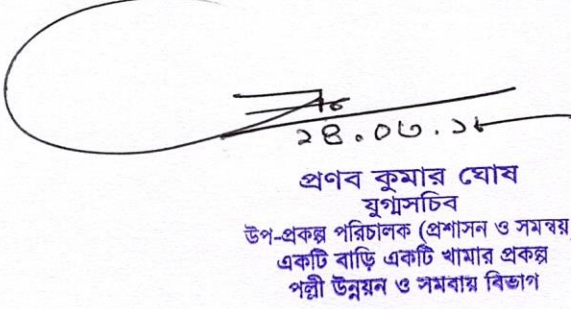 ২৪.০৩.১৮
প্রণব কুমার ঘোষ
যুগ্মসচিব
উপ-প্রকল্প পরিচালক (প্রশাসন ও সমন্বয়)
একটি বাড়ি একটি খামার প্রকল্প
পল্লী উন্নয়ন ও সমবায় বিভাগ